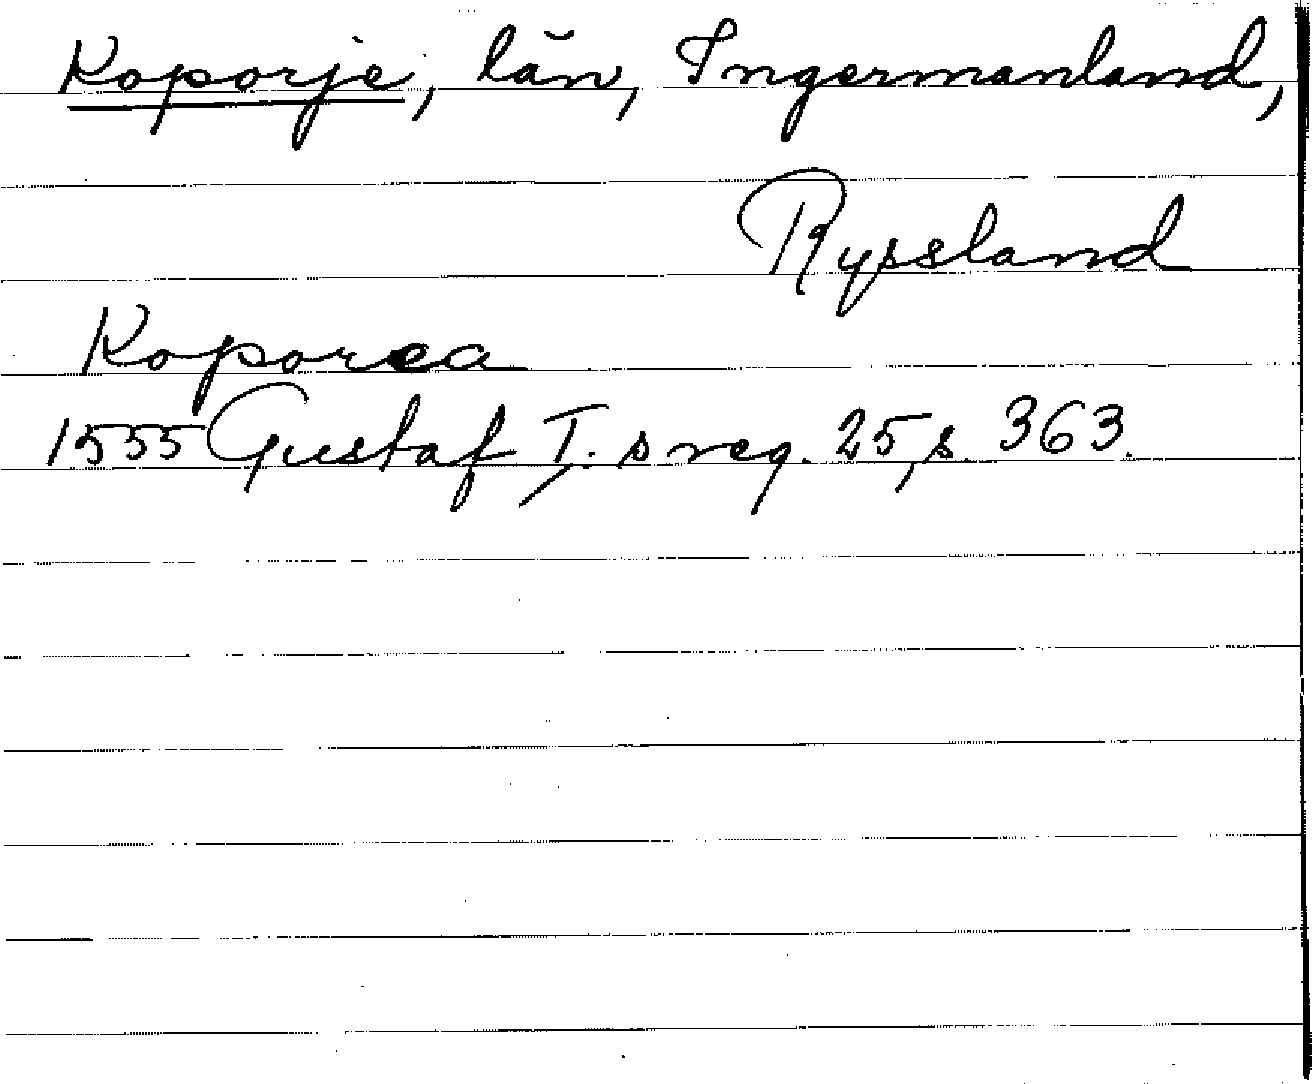 Koporje, län, Ingermanland,
Ryssland
Koporea
1555 Gustaf I. s reg. 25, s. 363.